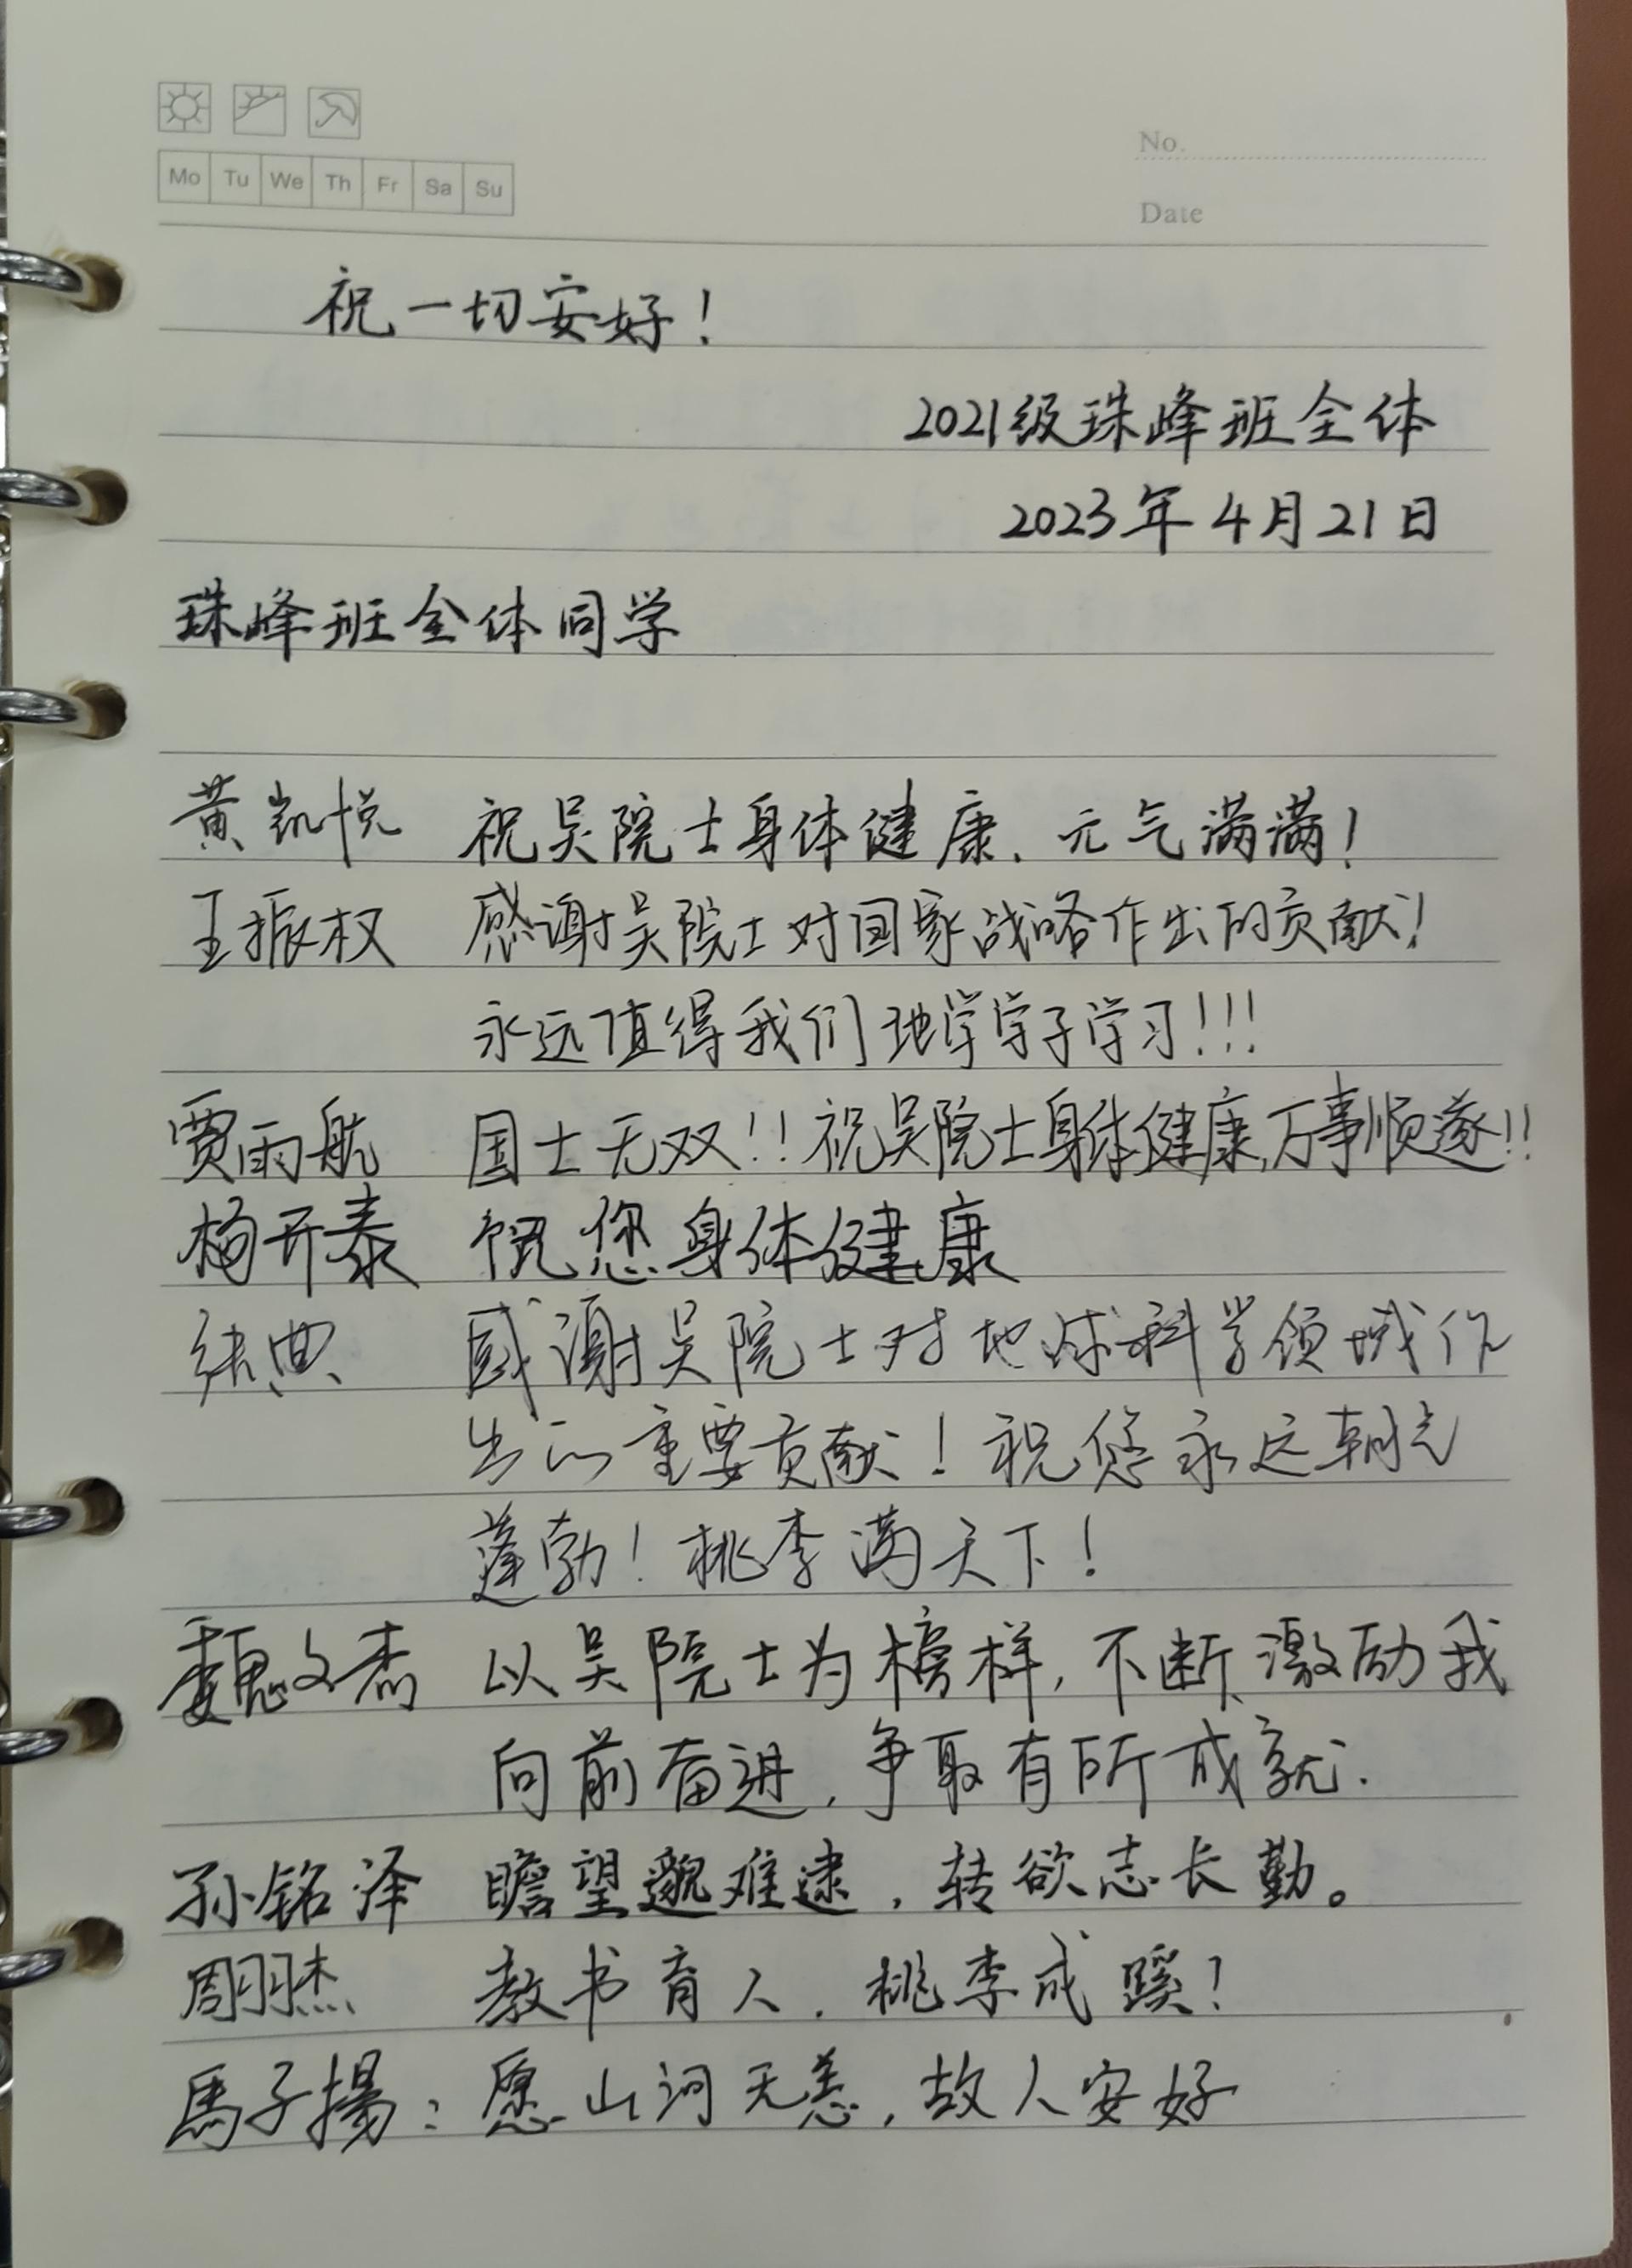 Mo Tu We Th Fr Sa Su
No.
Date
祝一切安好！
2021级珠峰班全体
2023年4月21日
珠峰班全体同学
黄凯悦 祝吴院士身体健康、元气满满！
王振权 感谢吴院士对国家战略作出的贡献！
永远值得我们地学学子学习!!!
贾雨航 国士无双!!祝吴院士身体健康,万事顺遂!!
杨开泰 祝您身体健康
张典 感谢吴院士对地球科学领域作
出的重要贡献！祝您永远朝气
蓬勃！桃李满天下！
魏文 以吴院士为榜样,不断激励我
向前奋进,争取有所成就.
孙铭泽 瞻望邈难逮,转欲志长勤。
周羽杰 教书育人,桃李成蹊！
馬子揚：愿山河无恙,故人安好